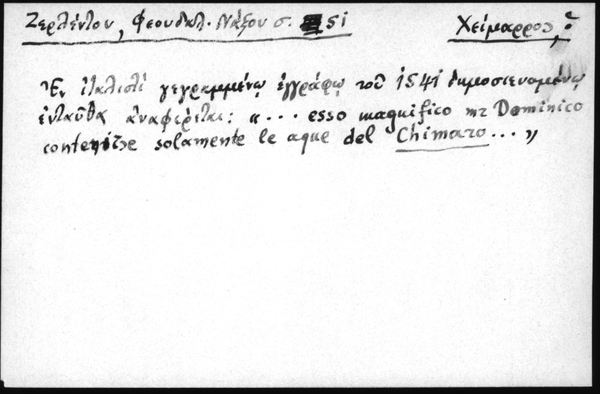 Ζερλέντου, Φεουδαλ. Νάξου σ. 51
Χείμαρρος, ὁ
Ἐν ἰταλιστί γεγραμμένῳ ἐγγράφῳ τοῦ 1541 δημοσιευομένῳ
ἐνταῦθα ἀναφέρεται: «... esso magnifico mr Dominico
solamente le aque del Chimaro...»